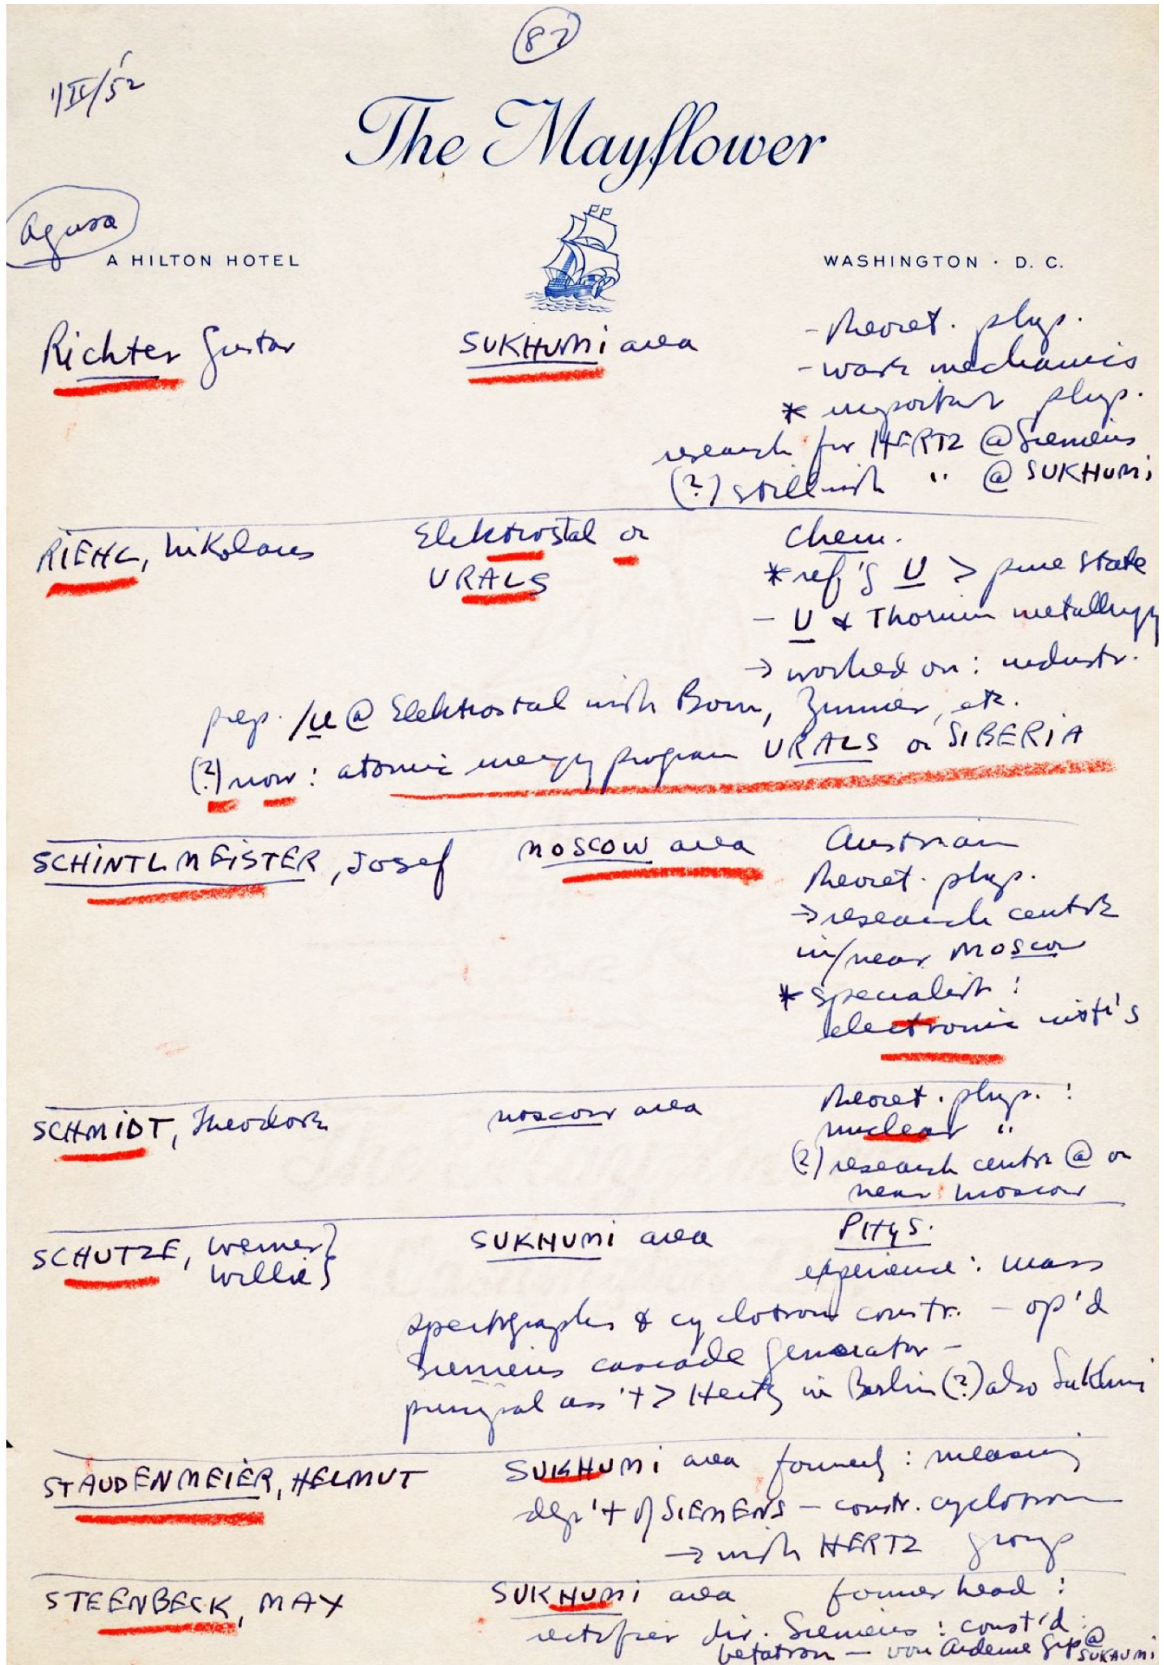 82
1/II/52
The Mayflower
agusa
A HILTON HOTEL
WASHINGTON · D. C.
Richter Gustav SUKHUMI area - theoret. phys.
- wave mechanics
* important phys.
research for HERTZ @ Siemens
(?) still with " @ SUKHUMI
RIEHL, Nikolaus Elektrostal or Chem.
URALS * ref'g U > pure state
- U & Thorium metallurgy
→ worked on: industr.
prep. /U @ Elektrostal with Born, Zimmer, etc.
(?) now: atomic energy program URALS or SIBERIA
SCHINTLMEISTER, Josef MOSCOW area Austrian
theoret. phys.
→ research centre
in/near Moscow
* specialist:
electronic inst's
SCHMIDT, Theodore Moscow area theoret. phys.:
nuclear "
(?) research centre @ or
near Moscow
SCHUTZE, Werner} SUKHUMI area PHYS.
Willie} experience: mass
spectrographs & cyclotron constr. - op'd
Siemens cascade generator -
principal ass't > Hertz in Berlin (?) also Sukhumi
STAUDENMEIER, HELMUT SUKHUMI area formerly: measuring
dep't of SIEMENS - constr. cyclotron
→ with HERTZ group
STEENBECK, MAX SUKHUMI area former head:
rectifier div. Siemens: const'd:
betatron - von Ardenne Grp @ SUKHUMI